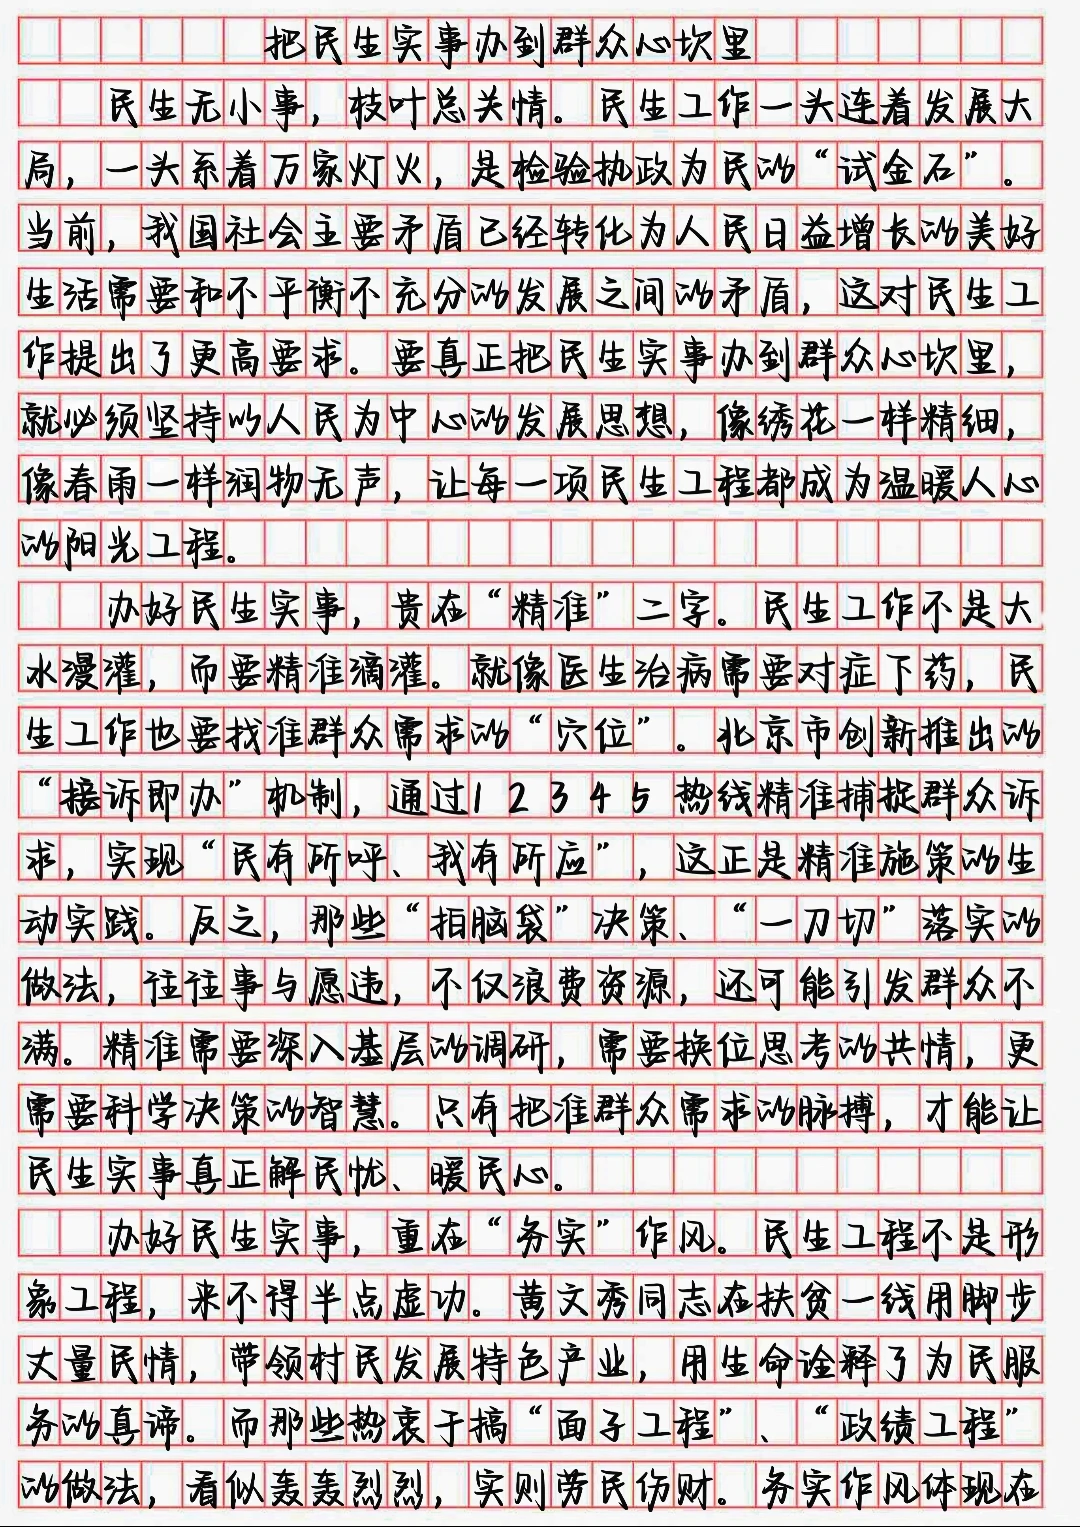 把民生实事办到群众心坎里
民生无小事，枝叶总关情。民生工作一头连着发展大
局，一头系着万家灯火，是检验执政为民的“试金石”。
当前，我国社会主要矛盾已经转化为人民日益增长的美好
生活需要和不平衡不充分的发展之间的矛盾，这对民生工
作提出了更高要求。要真正把民生实事办到群众心坎里，
就必须坚持以人民为中心的发展思想，像绣花一样精细，
像春雨一样润物无声，让每一项民生工程都成为温暖人心
的阳光工程。
办好民生实事，贵在“精准”二字。民生工作不是大
水漫灌，而要精准滴灌。就像医生治病需要对症下药，民
生工作也要找准群众需求的“穴位”。北京市创新推出的
“接诉即办”机制，通过12345热线精准捕捉群众诉
求，实现“民有所呼、我有所应”，这正是精准施策的生
动实践。反之，那些“拍脑袋”决策、“一刀切”落实的
做法，往往事与愿违，不仅浪费资源，还可能引发群众不
满。精准需要深入基层的调研，需要换位思考的共情，更
需要科学决策的智慧。只有把准群众需求的脉搏，才能让
民生实事真正解民忧、暖民心。
办好民生实事，重在“务实”作风。民生工程不是形
象工程，来不得半点虚功。黄文秀同志在扶贫一线用脚步
丈量民情，带领村民发展特色产业，用生命诠释了为民服
务的真谛。而那些热衷于搞“面子工程”、“政绩工程”
的做法，看似轰轰烈烈，实则劳民伤财。务实作风体现在